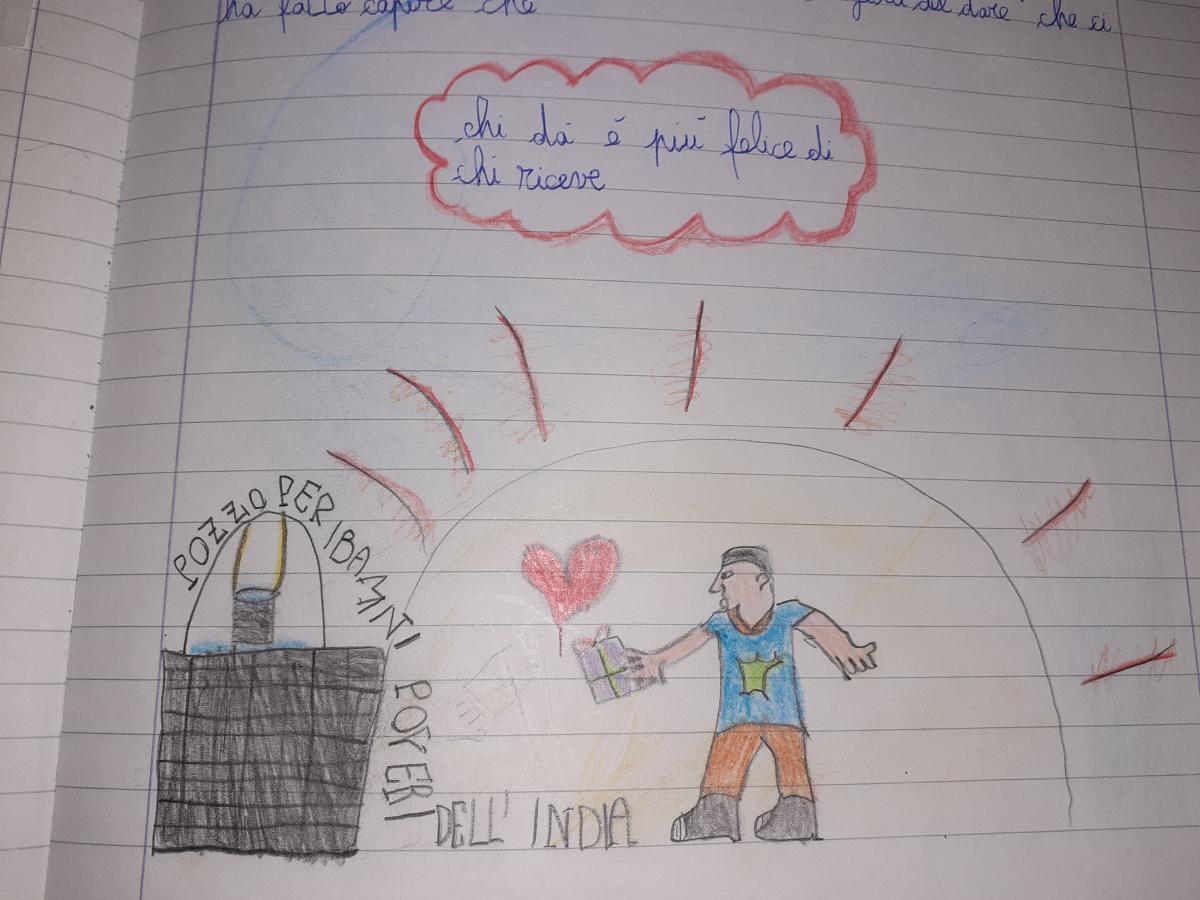 ha fatto capire che del dare che ci
chi dà è più felice di
chi riceve
POZZO PER I BAMNI
POVERI
DELL' INDIA